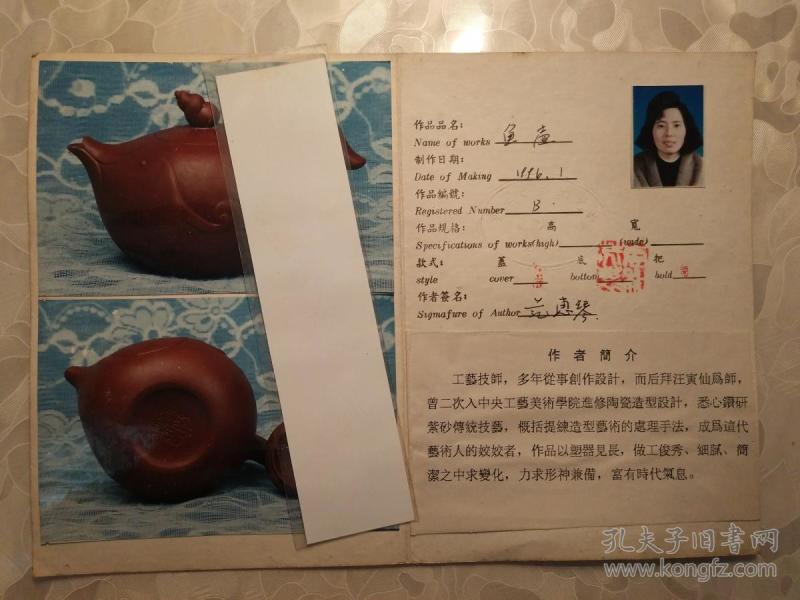 作品品名：
Name of works 鱼壶
制作日期：
Date of Making 1996.1
作品編號：
Registered Number B.
作品規格： 高 寬
Specifications of works(high) (wide)
款式： 蓋 底 把
style cover bottom hold
作者簽名：
Sigmafure of Author 范惠琴
作者簡介
工藝技師，多年從事創作設計，而后拜汪寅仙爲師，
曾二次入中央工藝美術學院進修陶瓷造型設計，悉心鑽研
紫砂傳統技藝，概括提練造型藝術的處理手法，成爲這代
藝術人的姣姣者，作品以塑器見長，做工俊秀、細膩、簡
潔之中求變化，力求形神兼備，富有時代氣息。
孔夫子旧书网
www.kongfz.com